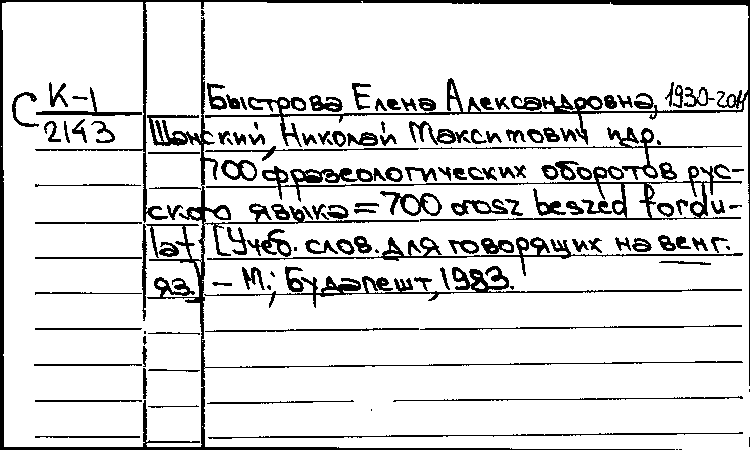 С К-1
Быстрова Елена Александровна, 1930-2011
2143 Шанский, Николай Максимович и др.
700 фразеологических оборотов рус-
ского языка = 700 orosz beszed fordu-
lat [Учеб. слов. для говорящих на венг.
яз.] – М.; Будапешт, 1983.